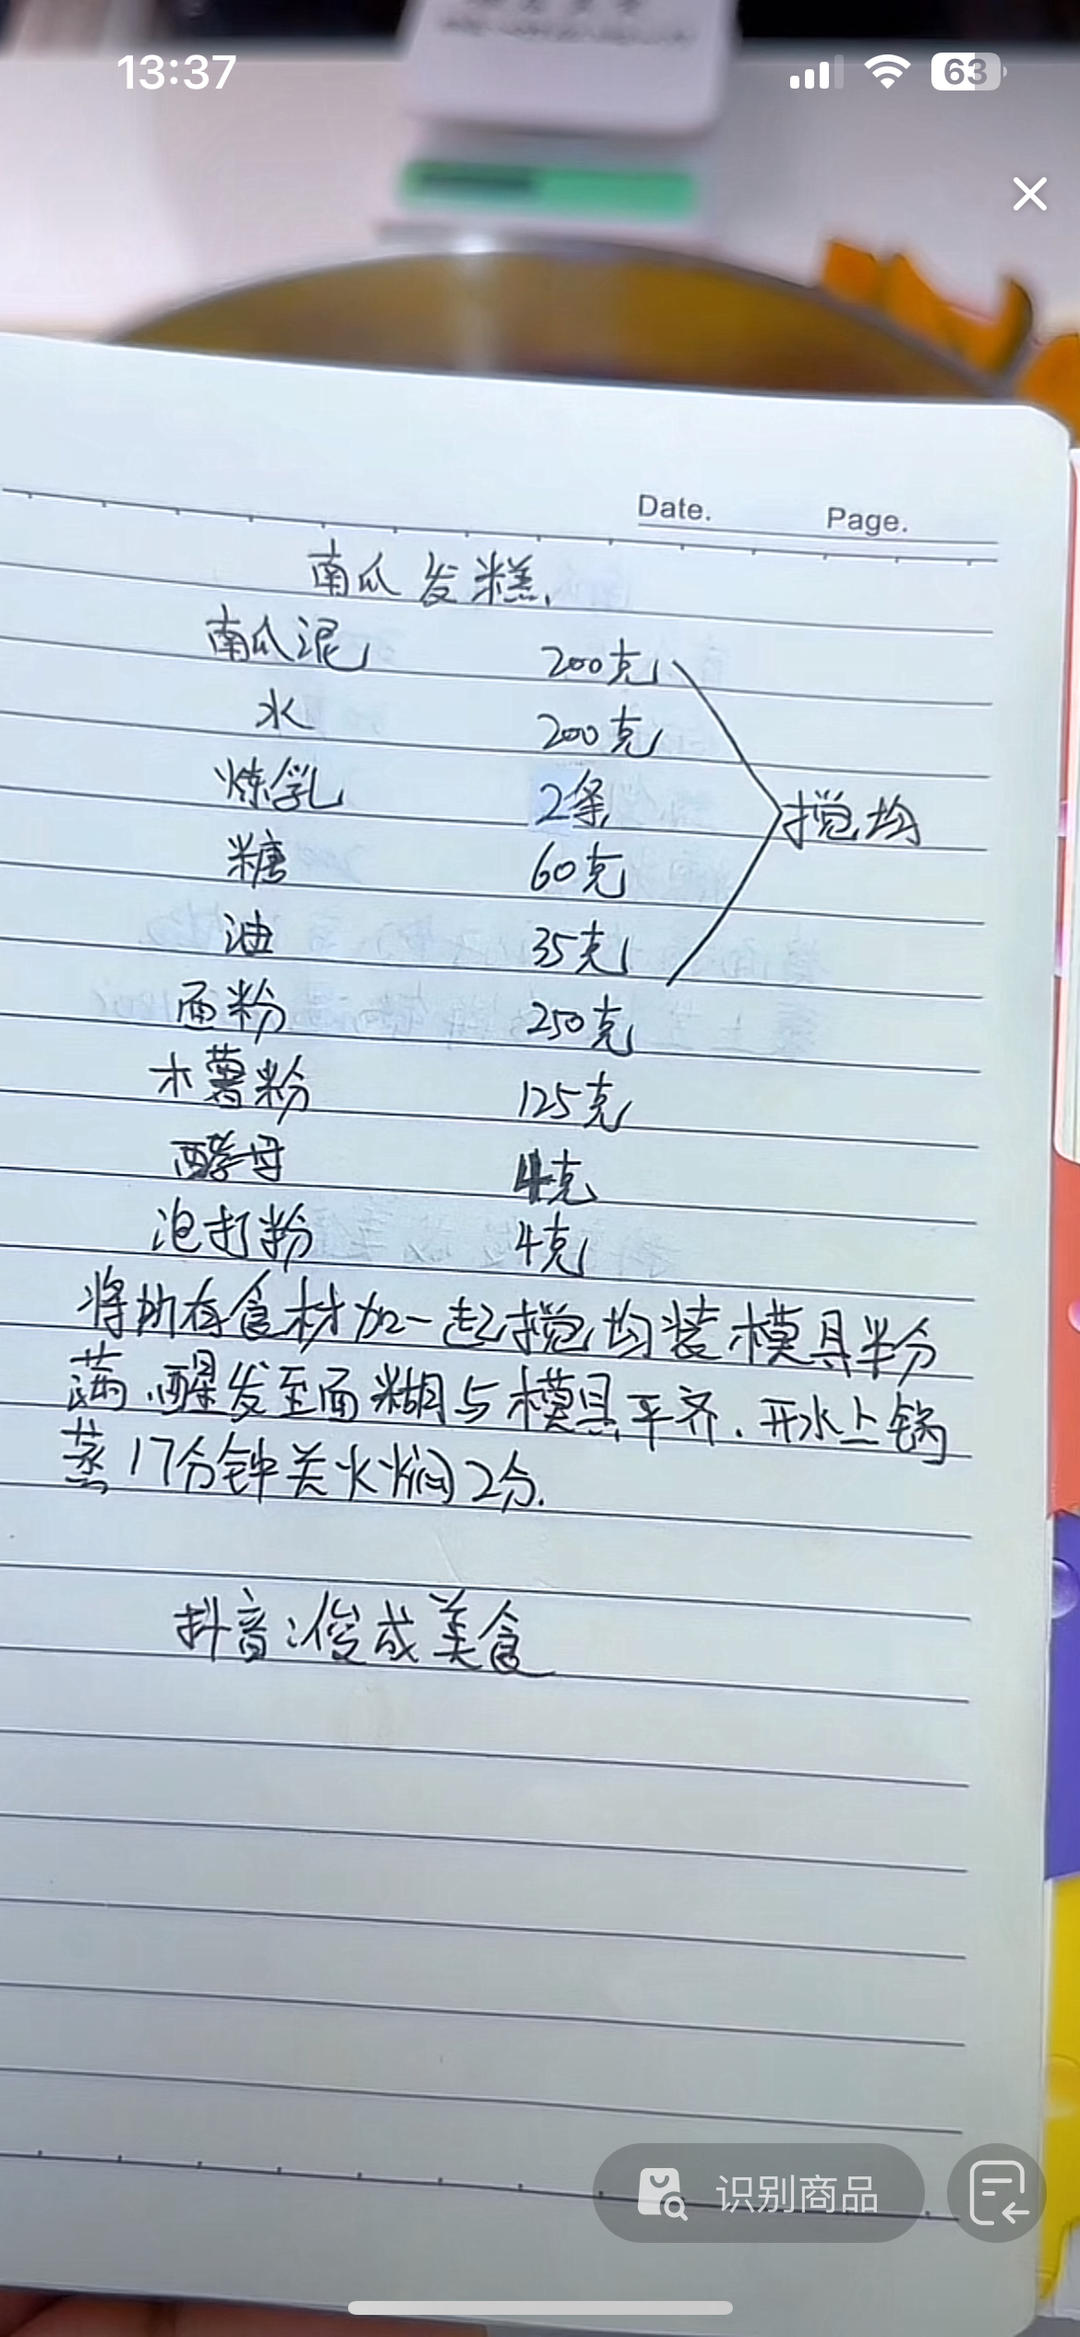 13:37
63
Date. Page.
南瓜发糕.
南瓜泥 200克
水 200克
炼乳 2条
搅均
糖 60克
油 35克
面粉 250克
木薯粉 125克
酵母 4克
泡打粉 4克
将所有食材加一起搅均装模具半分
满.醒发至面糊与模具平齐.开水上锅
蒸17分钟关火焖2分.
抖音:俊成美食
识别商品